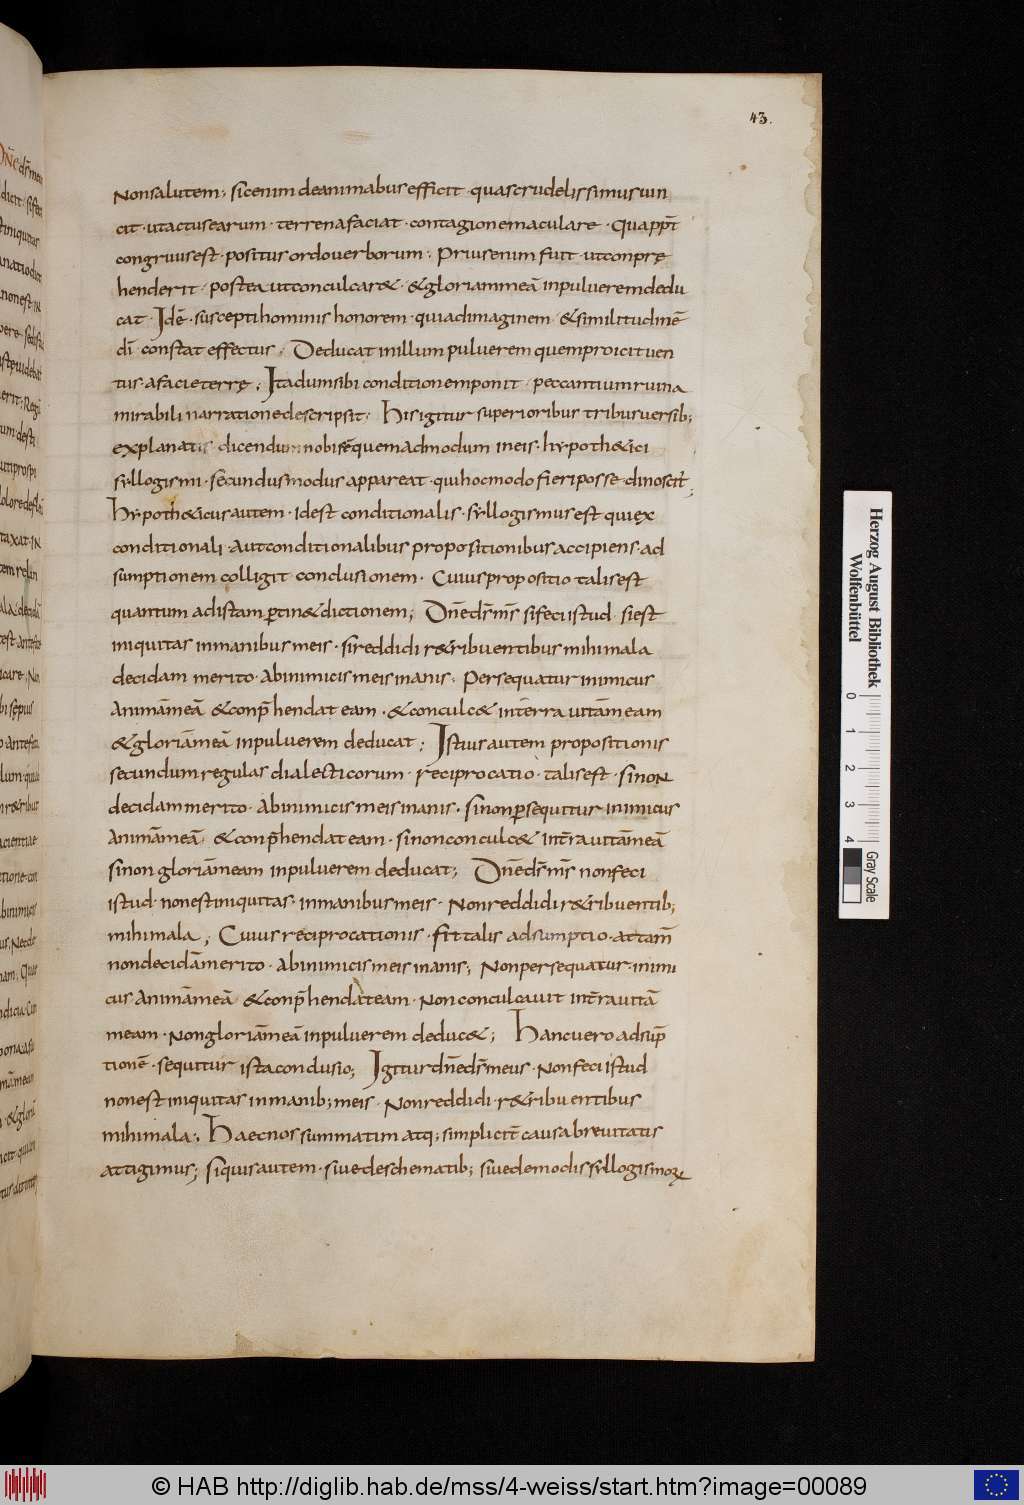 43.
Nonsalutem; sicenim deanimabus efficit · quascrudelissimus uin
cit · utactusearum · terrenafaciat · contagionemaculare · Quapp̄t
congruusest · positus ordouerborum · Priusenim fuit · utconpre
henderit · postea utconculcar& · &gloriammeā inpulueremdedu
cat · Idē · susceptihominis honorem · quiadimaginem · &similitudinē
dī · constat effectus · Deducat inillum puluerem quemproicit uen
tus · afacieterrę; Itadumsibi conditionemponit · peccantiumruina
mirabili narrationedescripsit · Hisigitur superioribus tribusuersib;
explanatis · dicendumnobisē quemadmodum ineis · hypoth&ici
syllogismi · secundusmodus appareat · quihocmodo fieriposse dinoscit̄;
Hypoth&icusautem · idest conditionalis · syllogismusest quiex
conditionali · autconditionalibus propositionibusaccipiens · ad
sumptionem colligit conclusionem · Cuiuspropositio talisest
quantum adistam ptin&dictionem; Dnēds̄ms̄ sifeciistud · siest
iniquitas inmanibusmeis · sireddidi r&ribuentibus mihimala
decidam merito · abinimicis meisinanis · Persequatur inimicus
animāmeā &conp̄hendat eam · &conculc& interra uitāmeam
&gloriāmeā inpuluerem deducat; Istiusautem propositionis
secundumregulas dialecticorum · reciprocatio · talisest · sinon
decidammerito · abinimicis meisinanis · sinonpsequitur inimicus
animāmeā &conp̄hendat eam · sinonconculc& intr̄auitāmeā
sinon gloriāmeam inpuluerem deducat; Dnēds̄ms̄ nonfeci
istud · nonestiniquitas · inmanibusmeis · Nonreddidi r&ribuentib;
mihimala; Cuius reciprocationis · fit talis adsumptio · attam̄
nondecidāmerito · abinimicis meis inanis; Nonpersequatur inimi
cus animāmeā &conp̄hendateam · Nonconculcauit intr̄auitā
meam · Nongloriāmeā inpuluerem deduc&; Hancuero adsūp
tionē · sequitur istaconclusio; Igiturdnēds̄meus · Nonfeci istud
nonestiniquitas inmanib; meis · Nonreddidi · r&ribuentibus
mihimala; Haecnos summatim atq; simplicit̄ causabreuitatis
attigimus; siquisautem · siuedeschematib; siuedemodis syllogismorꝝ
Herzog August Bibliothek
Wolfenbüttel
0 1 2 3 4
Gray Scale
© HAB http://diglib.hab.de/mss/4-weiss/start.htm?image=00089